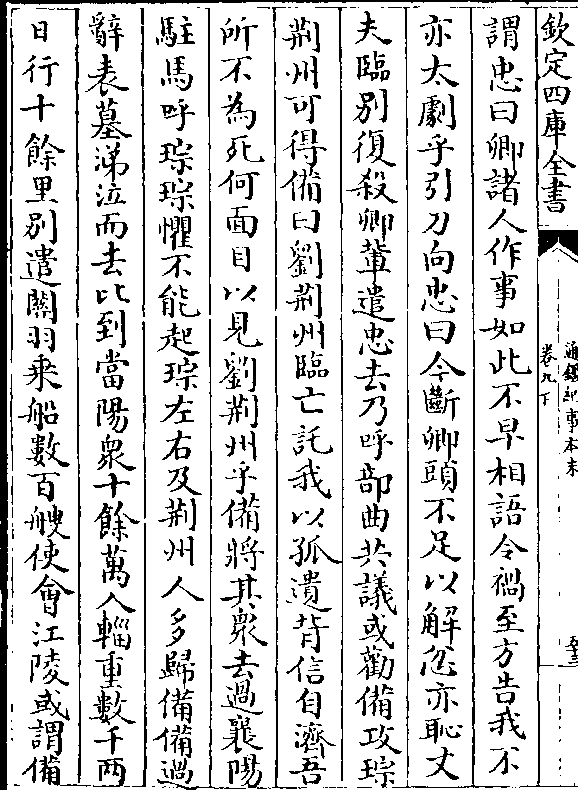 欽定四庫全書
通鑑紀事本末
卷九下
謂忠曰卿諸人作事如此不早相語今禍至方告我不
亦太劇乎引刀向忠曰今斷卿頭不足以解忿亦恥丈
夫臨别復殺卿輩遣忠去乃呼部曲共議或勸備攻琮
荆州可得備曰劉荆州臨亡託我以孤遺背信自濟吾
所不為死何面目以見劉荆州乎備將其衆去過襄陽
駐馬呼琮琮懼不能起琮左右及荆州人多歸備備過
辭表墓涕泣而去比到當陽衆十餘萬人輜重數千兩
日行十餘里别遣關羽乗船數百艘使會江陵或謂備